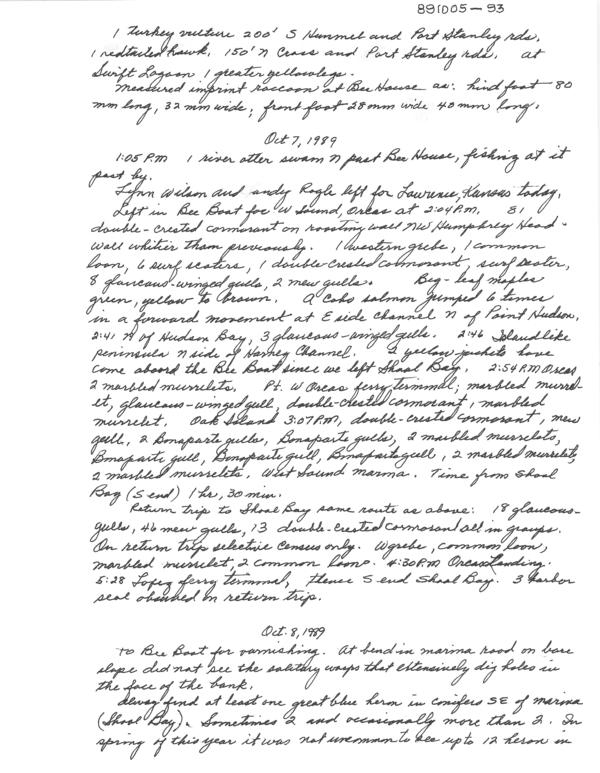 891005-93
1 Turkey vulture 200' S Hummel and Port Stanley rds.
1 redtailed hawk, 150' N Cross and Port Stanley rds. At
Swift Lagoon 1 greater yellowlegs.
Measured imprint raccoon at Bee House as: hind foot 80
mm long, 32 mm wide; front foot 28mm wide 40 mm long.
Oct 7, 1989
1:05 P.M 1 river otter swam N past Bee House, fishing as it
past by.
Lynn Wilson and Andy Rogle left for Lawrence, Kansas today.
Left in Bee Boat for W Sound, Orcas at 2:04 P.M. 81
double-crested cormorant on roosting wall NW Humphrey Head -
wall whitier tham previously. 1 western grebe, 1 common
loon, 6 surf scoters, 1 double-crested cormorant, surf scoter,
8 glaucous-winged gulls, 2 mew gulls. Big-leaf maples
green, yellow to brown. A Coho salmon jumped 6 times
in a forward movement at E side channel N of Point Hudson,
2:41 N of Hudson Bay, 3 glaucous-winged gulls. 2:46 Island like
peninsula N side of Harney Channel. 2 yellow jackets have
come aboard the Bee Boat since we left Shoal Bay. 2:54 P.M Orcas
2 marbled murrelets. Pt. W Orcas ferry terminal; marbled murrel-
et, glaucous-winged gull, double-crested cormorant, marbled
murrelet. Oak Island 3:07 P.M, double-crested cormorant, mew
gull, 2 Bonaparte gulls, Bonaparte gulls, 2 marbled murrelets,
Bonaparte gull, Bonaparte gull, Bonaparte gull, 2 marbled murrelets,
2 marbled murrelets. West Sound marina. Time from Shoal
Bay (S end) 1 hr, 30 min.
Return trip to Shoal Bay same route as above: 18 glaucous-
gulls, 46 mew gulls, 13 double-crested cormorant all in groups.
On return trip selective census only. W grebe, common loon,
marbled murrelet, 2 common loons. 4:30 P.M Orcas Landing.
5:28 Lopez ferry terminal, thence S end Shoal Bay. 3 harbor
seal observed on return trip.
Oct. 8, 1989
To Bee Boat for varnishing. At bend in marina road on bare
slope did not see the solitary wasps that extensively dig holes in
the face of the bank.
Alway find at least one great blue heron in conifers SE of marina
(Shoal Bay). Sometimes 2 and occasionally more than 2. In
spring of this year it was not uncommon to see up to 12 heron in